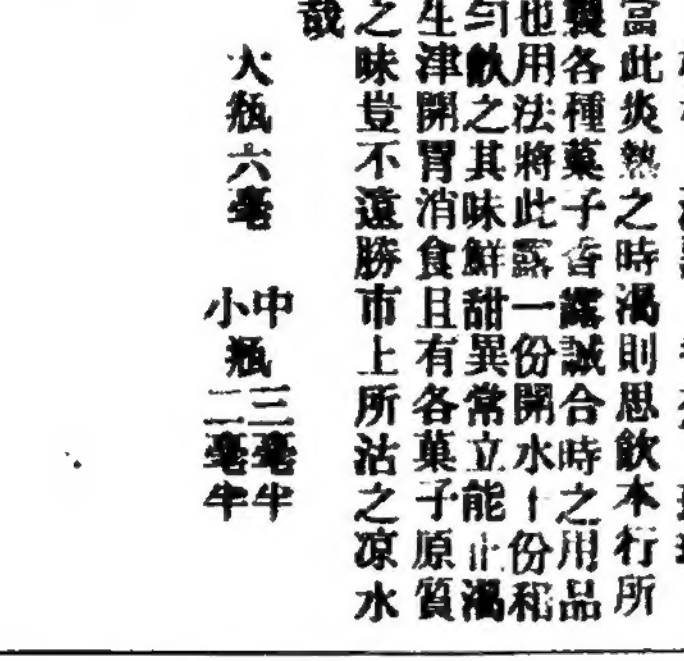 當此炎熱之時渴則思飲本行所
製各種菓子香露誠合時之用品
也用法將此露一份開水十份和
勻飲之其味鮮甜異常立能止渴
生津開胃消食且有各菓子原質
之味豈不遠勝市上所沽之凉水
哉
大瓶六毫
中瓶三毫半
小瓶二毫半